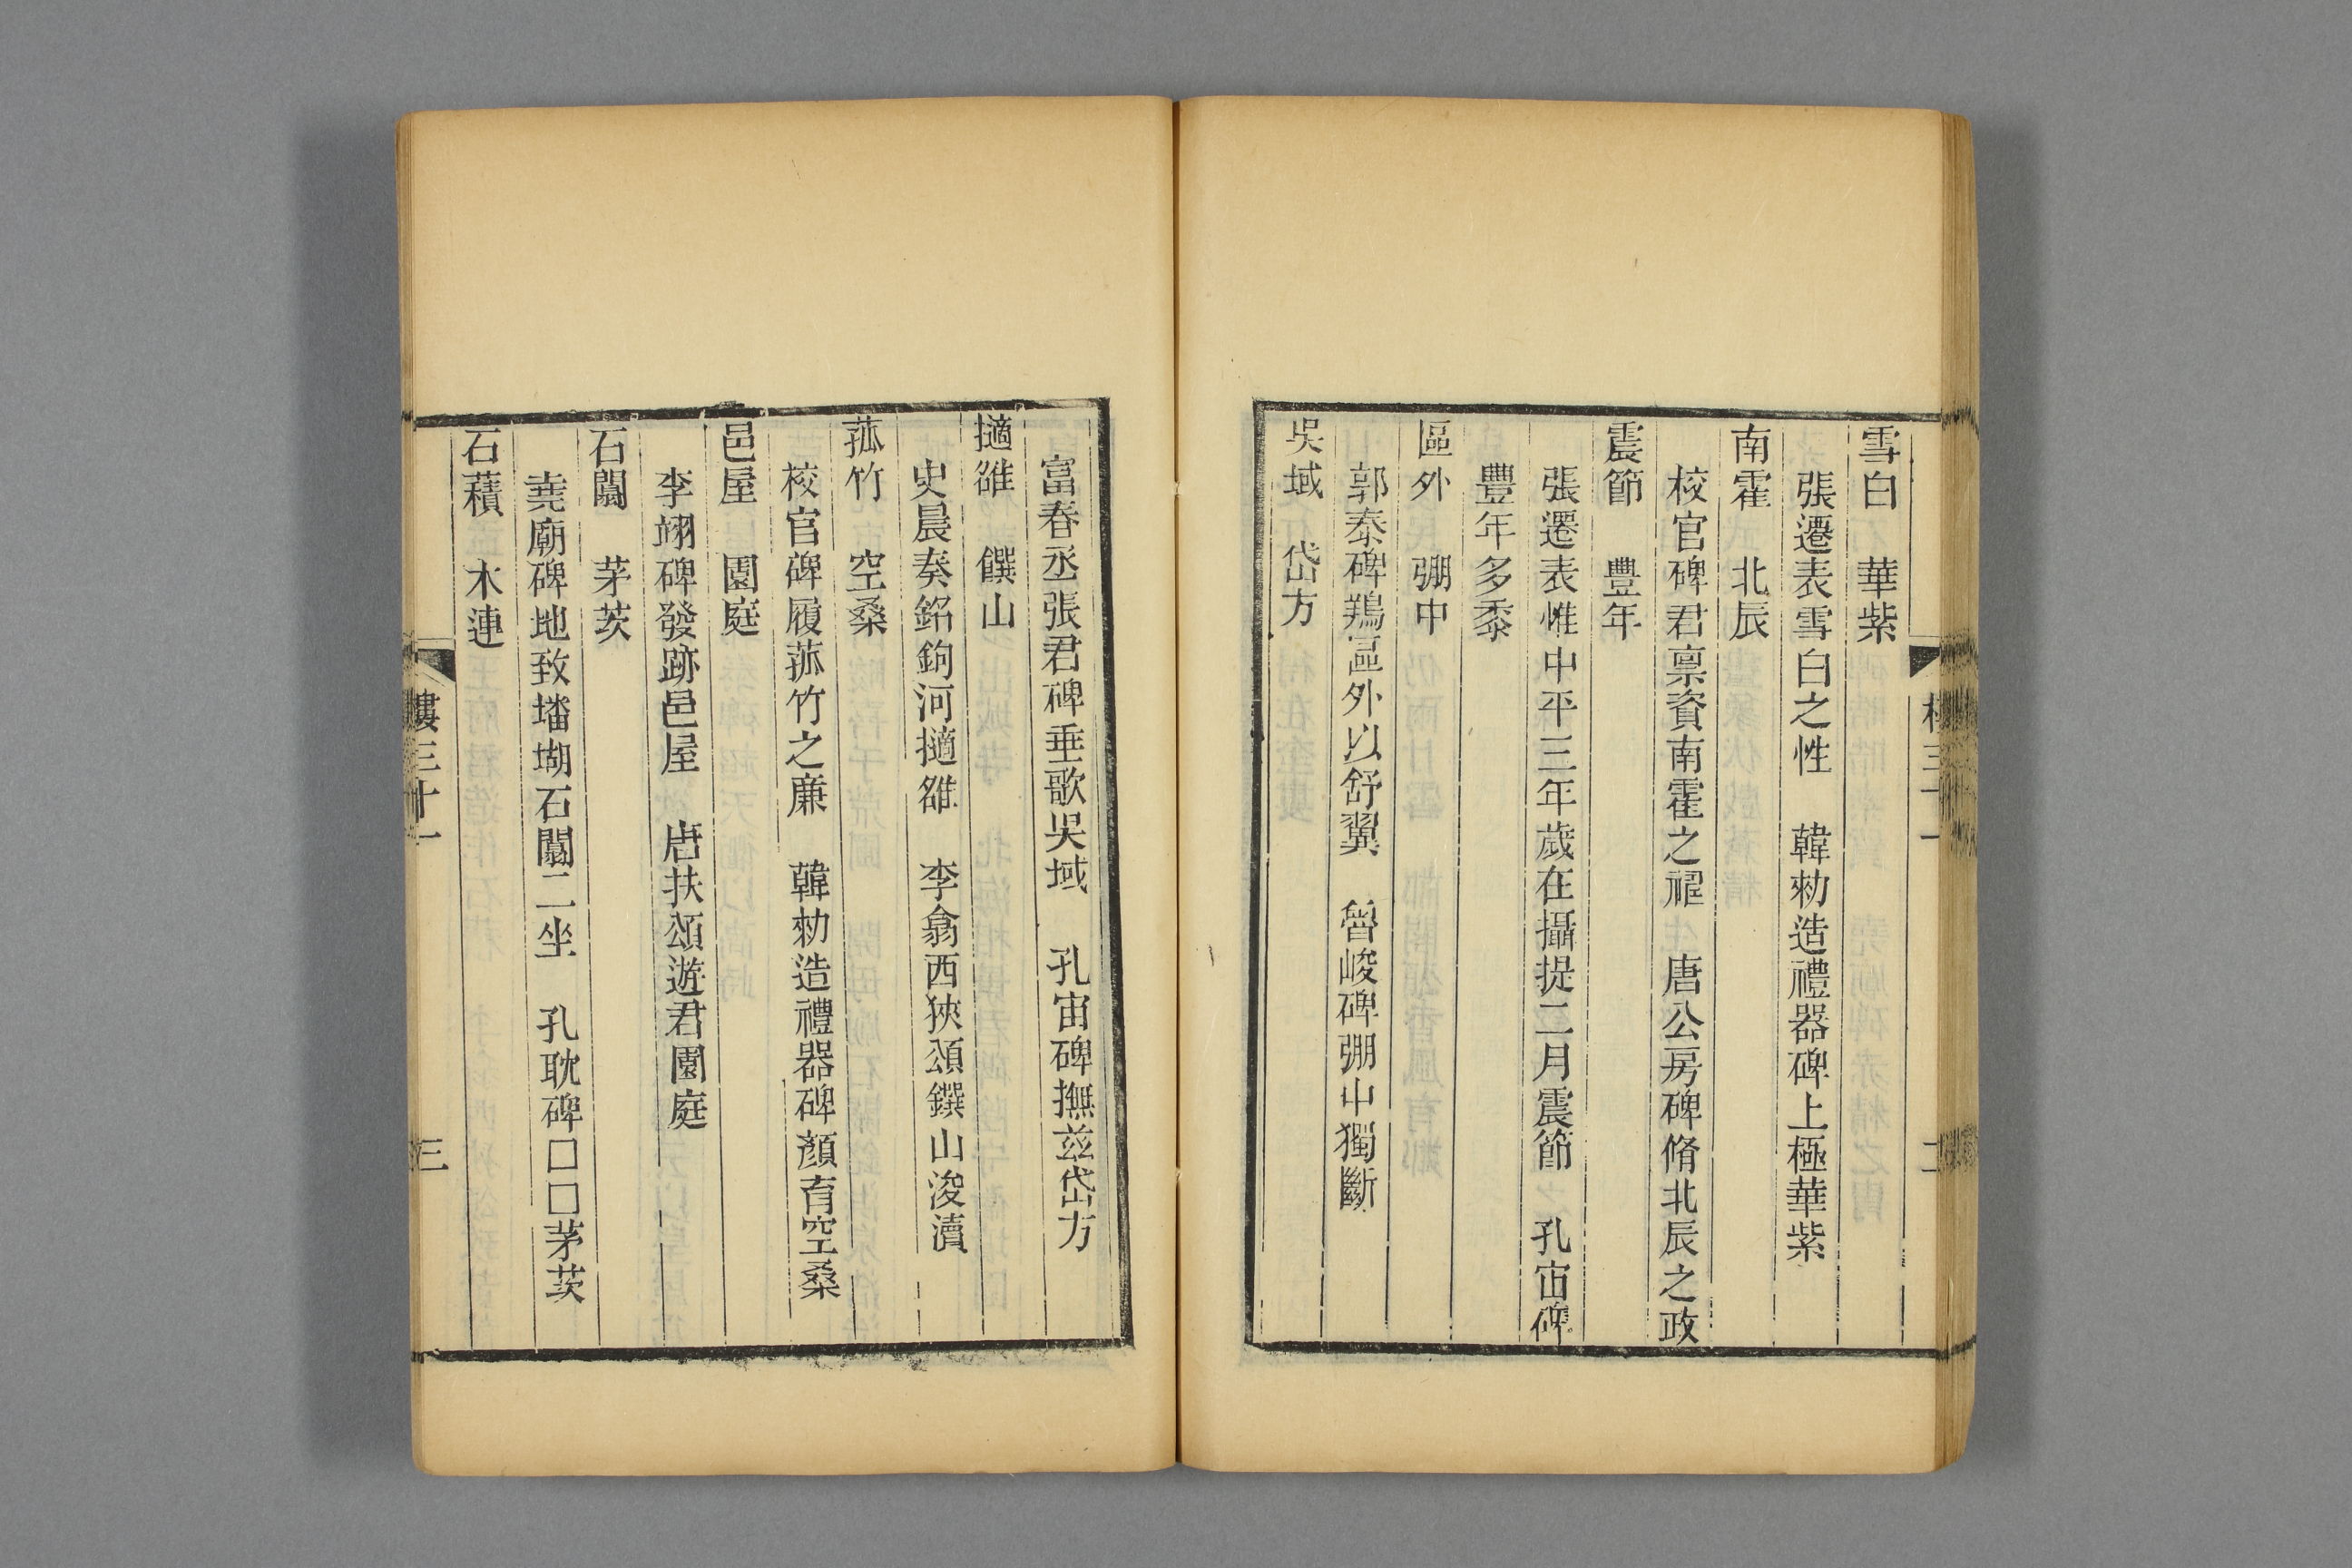 雪白　華紫
張遷表雪白之性　韓勑造禮器碑上極華紫
南霍　北辰
校官碑君禀資南霍之䄇　唐公房碑脩北辰之政
震節　豐年
張遷表惟中平三年歲在攝提二月震節　孔宙碑
豐年多黍
區外　弸中
郭泰碑鶤區外以舒翼　魯峻碑弸中獨斷
吳域　岱方
富春丞張君碑垂歌吳域　孔宙碑撫茲岱方
擿雒　饌山
史晨奏銘鉤河擿雒　李翕西狹頌鐉山浚瀆
菰竹　空桑
校官碑履菰竹之廉　韓勑造禮器碑顏育空桑
邑屋　園庭
李翊碑發跡邑屋　唐扶頌遊君園庭
石闕　茅茨
堯廟碑地致墦堋石闕二坐　孔耽碑□□茅茨
石䕌　木連
樓三十一
三